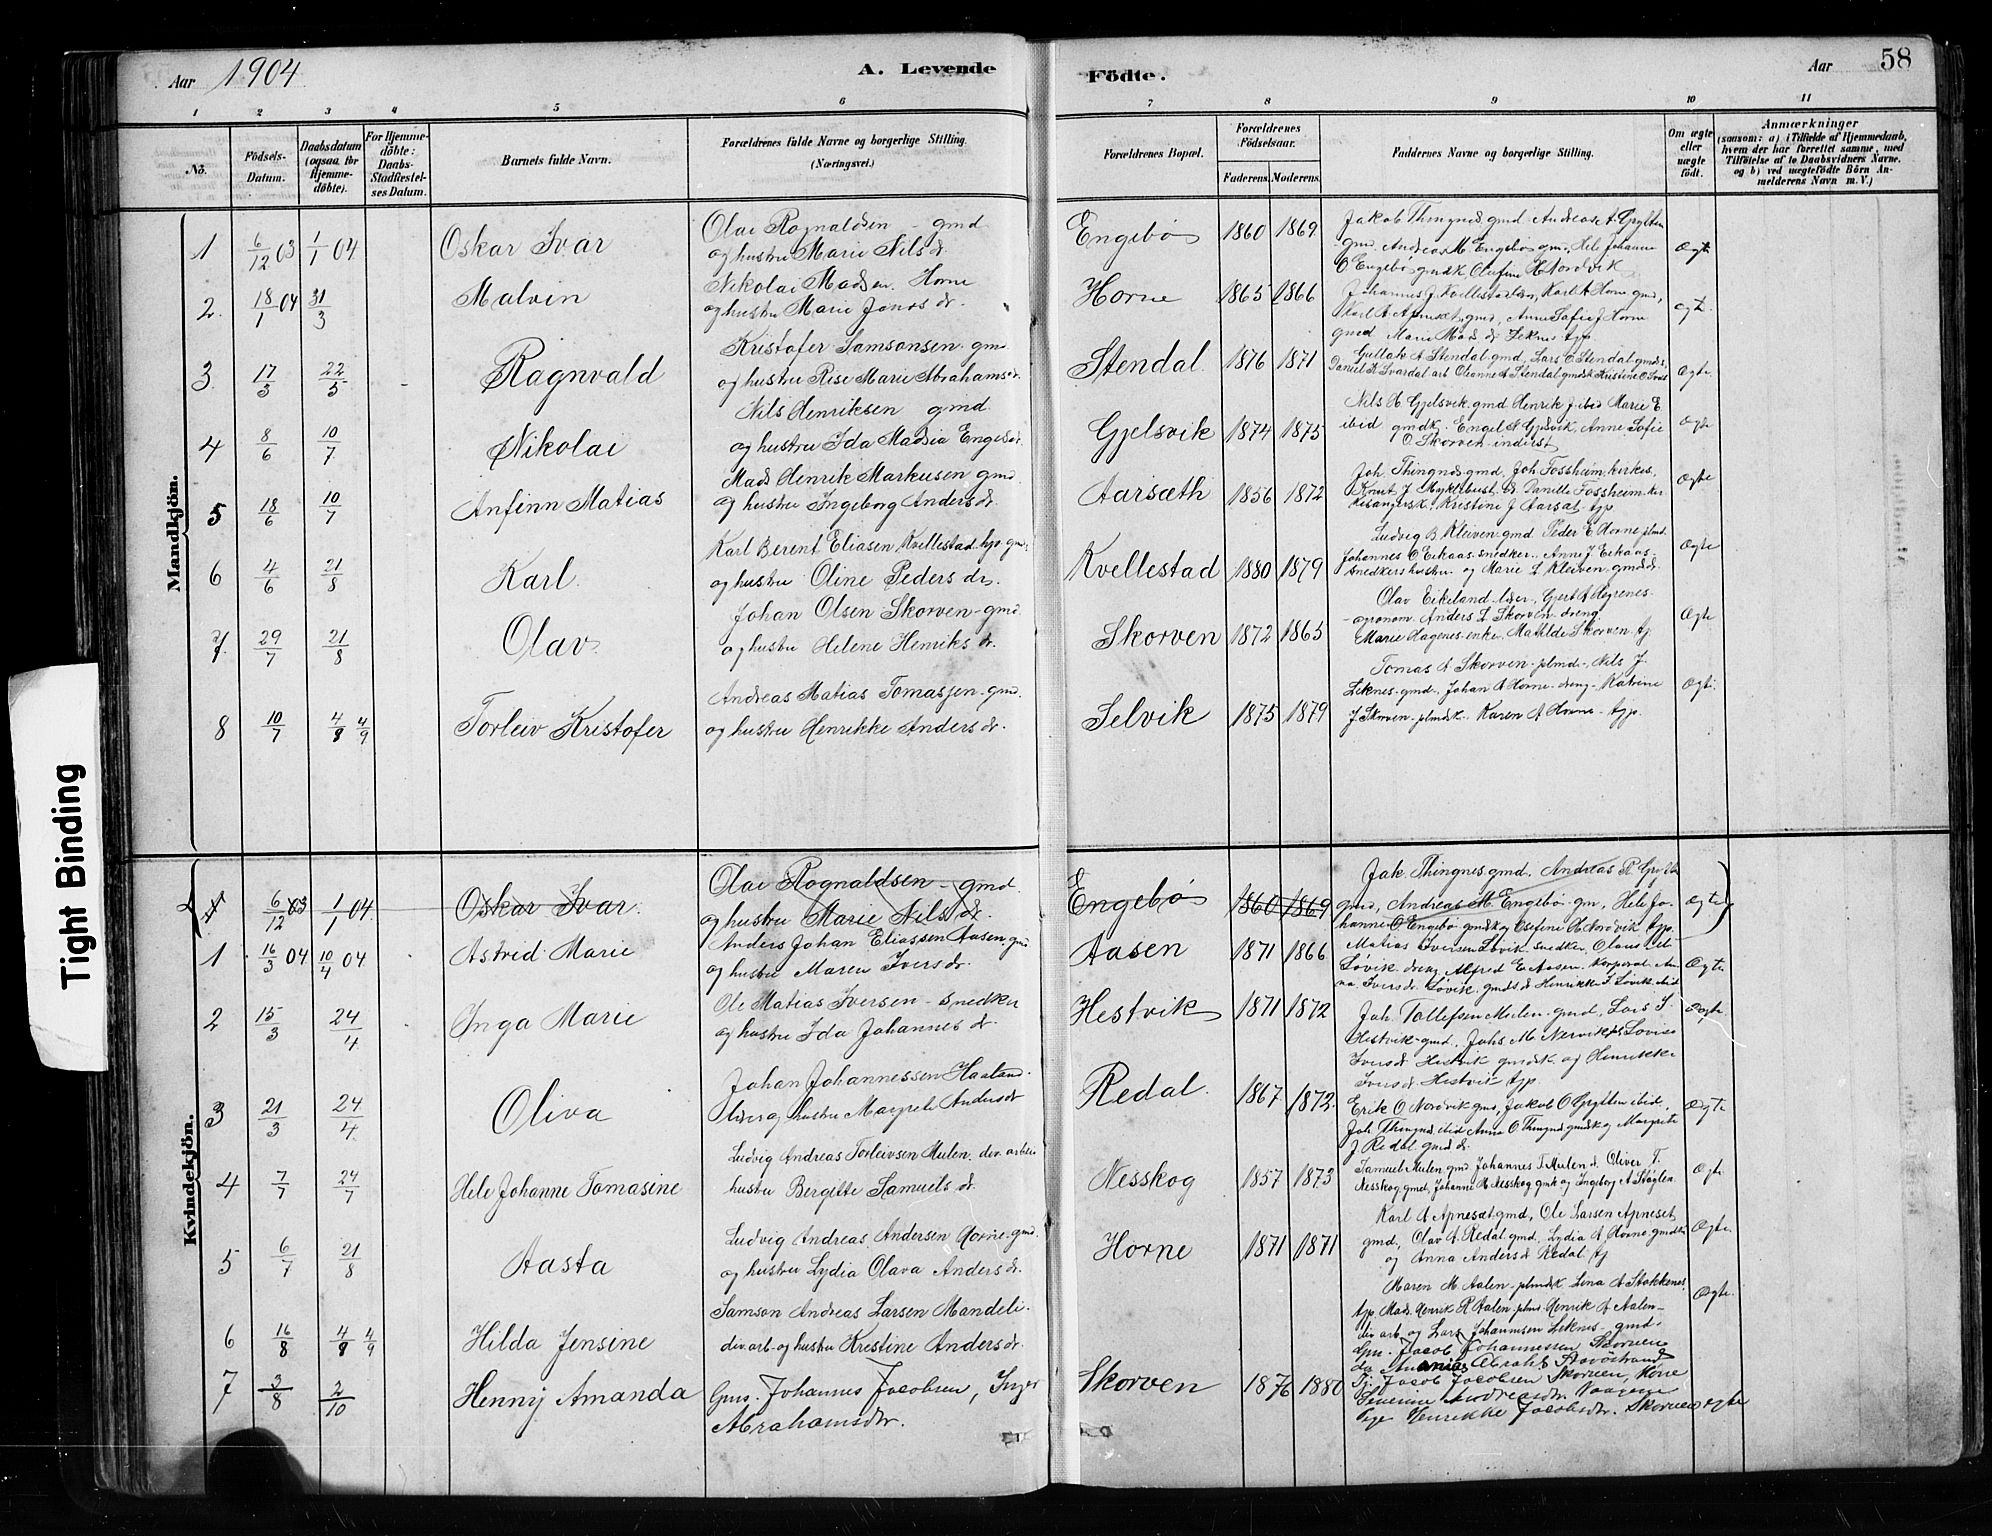 Aar 1904
A. Levende
Födte.
Aar 58
1 2 3 4 5 6 7 8 9 10 11
No.
Födsels-Datum.
Daabsdatum (ogsaa for Hjemmedöbte).
For Hjemmedöbte: Daabs-Stadfæstelses Datum.
Barnets fulde Navn.
Forældrenes fulde Navne og borgerlige Stilling. (Næringsvei.)
Forældrenes Bopæl.
Forældrenes Födselsaar.
Faderens. Moderens.
Faddernes Navne og borgerlige Stilling.
Om ægte eller uægte födt.
Anmærkninger
(saasom: a) i Tilfælde af Hjemmedaab, hvem der har forrettet samme, med Tilföielse af to Daabsvidners Navne. og b) ved uægtefödte Börn Anmelderens Navn m. V.)
Mandkjön.
1 6/12 03 1/1 04 Oskar Ivar
Olai Rognaldsen - gmd
og hustru Marie Nils dr.
Engebö 1860 1869
Jakob Thingnes gmd. Andreas A Grytten
gmd. Andreas M. Engebö gm., Hele Johanne
O Engebö gmdk Olufine H Nordvik
Ægte
2. 18/1 04 31/3 Malvin
Nikolai Madsen Horne
og hustru Marie Jonas dr.
Horne 1865 1866
Johannes J. Kvellestad, Karl A Horne gmd,
Karl A Apneset gmd, Anne Sofie J Horne
gmd Marie Mads dr Leknes tjp
Ægte.
3. 17/3 22/5 Ragnvald
Kristofer Samsonsen gmd.
og hustru Rise Marie Abrahamsdr.
Stendal. 1876 1871
Gullak A Stendal gmd, Lars E Stendal gmds,
Daniel K Svardal arb Oleanne A Stendal gmdsk Kristine O
Ægte
4 8/6 10/7 Nikolai
Nils Henriksen gmd.
og hustru Ida Madsia Engelsdr.
Gjelsvik 1874 1875
Nils H. Gjelsvik gmd Henrik J ibid Marie E.
ibid gmdk. Engel N Gjelsvik, Anne Sofie
O Skorven inderst
Ægte
5 18/6 10/7 Anfinn Matias
Mads Henrik Markusen gmd.
og hustru Ingeborg Anders dr.
Aarsæth 1856 1872
Joh. Thingnes gmd, Joh Fossheim kirkes,
Knut J Myklebust Danielle Fossheim kir
kesangersk. Kristine J Aarsæt tjp
Ægte
6 4/6 21/8 Karl.
Karl Berent Eliasen Kvellestad hjp. gmd,
og hustru Oline Peders dr.
Kvellestad 1880 1879
Ludvig B Kleiven gmd Peder E Horne plmd
Johannes O Eikaas snedker. Anne J. Eikaas-
snedkershustru og Marie L Kleiven gmdsdr
Ægte
7. 29/7 21/8 Olav
Johan Olsen Skorven - gmd
og hustru Helene Henriks dr.
Skorven 1872 1865
Olav Eikeland lær, Gjert A Høyrenes
agronom Anders L Skorven dreng
Marie Hagenes enke. Mathilde Skorven tj
Ægte
8 10/7 4/8 4/9 Torleiv Kristofer
Andreas Matias Tomassen gmd.
og hustru Henrikke Anders dr.
Selvik 1875 1879
Tomas A Skorven plmd - Nils J.
Leknes gmd, Johan A Horne - dreng - Katrine
J Skorven plmdsk. Karen A Horne - tjp.
Ægte.
Kvindekjön.
6/12 03 1/1 04 Oskar Ivar.
Olai Rognaldsen - gmd.
og hustru Marie Nils dr.
Engebö 1860 1869
Jak. Thingnes gmd. Andreas A Grytte
gmd, Andreas M. Engebö gm, Hele Jo-
hanne O Engebö gmdk og Olufine H Nordvik tjp.
Ægte
1 16/3 04 10/4 04 Astrid Marie
Anders Johan Eliassen Aasen gmd
og hustru Maren Ivers dr.
Aasen 1871 1866
Matias Iversen Løvik snedker, Olaus
Løvik dreng Alfred E Aasen korporal An-
na Ivers dr Løvik gmdsd Henrikke I Løvik ibid
Ægte
2 15/3 24/4 Inga Marie
Ole Matias Iversen - snedker
og hustru Ida Johannes dr.
Hestvik 1871 1872
Joh. Tollefsen Mulen gmd, Lars I.
Hestvik gmd. Johs M Nervik Lovise
Ivers dr Hestvik gmdsk og Henrikke
Ivers dr. Hestvik tjp
Ægte.
3 21/3 24/4 Oliva
Johan Johannessen Haaland
lærer og hustru Margrete Andersdr
Redal. 1867 1872.
Erik O Nordvik gmd, Jakob O Grytten ibid,
Joh Thingnes ibid Anna O Thingnes gmdk og Margrete
J Redal gmd dr
Ægte
4 7/7 24/7 Hele Johanne Tomasine
Ludvig Andreas Torleivsen Mulen. dev. arbeider
hustru Bergitte Samuels dr
Nesskog 1857 1873
Samuel Mulen gmd Johannes T Mulen d. Oliver T.
Nesskog gmd, Johanne H Nesskog gmk og Ingeborg A Støylen
Ægte
5 6/7 21/8 Aasta
Ludvig Andreas Andersen Horne gmd.
og hustru Lydia Olava Anders dr.
Horne 1871 1871
Karl A Apnesæt gmd, Ole Larsen Apneset
gmd, Olav A Redal gmd, Lydia A Horne gmdsk
og Anna Anders dr Redal tj
Ægte
6 16/8 4/8 4/9 Hilda Jensine
Samson Andreas Larsen Mandeli.
div arb. og hustru Kristine Anders dr.
Maren M Aalen plmdsk Lina A Stokkenes
tjp. Mads Henrik R Aalen plmd. Henrik A Aalen -
div arb og Lars Johannsen Leknes - gmd.
Ægte.
7 3/8 2/10 Henny Amanda
Gm. Johannes Jacobsen, Inger
Abrahamsdr.
Skorven 1876 1880
Gm. Jacob Johannessen Skorven
Jacob Jacobsen Skorven, Kone
Severine Andreasdr.
Pige Henrikke Jacobsdr. Skorven
Ægte
Tight Binding